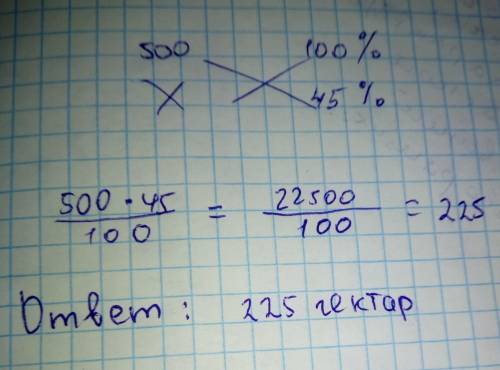 500 100%
X 45%
500 · 45 / 100 = 22500 / 100 = 225
Ответ: 225 гектар